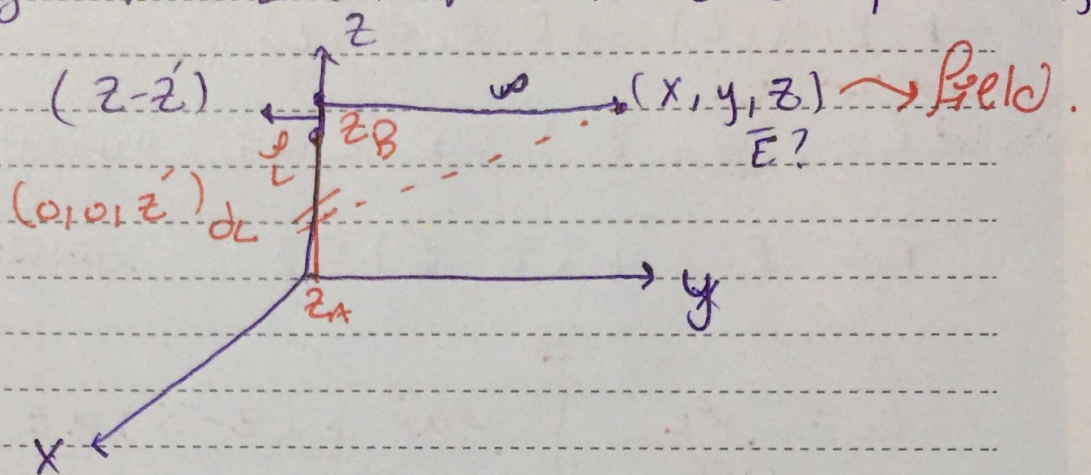 z
(z-z') (x, y, z) → field.
z_B
Ē?
ρ_L
(0,0,z') dL
z_A
y
x